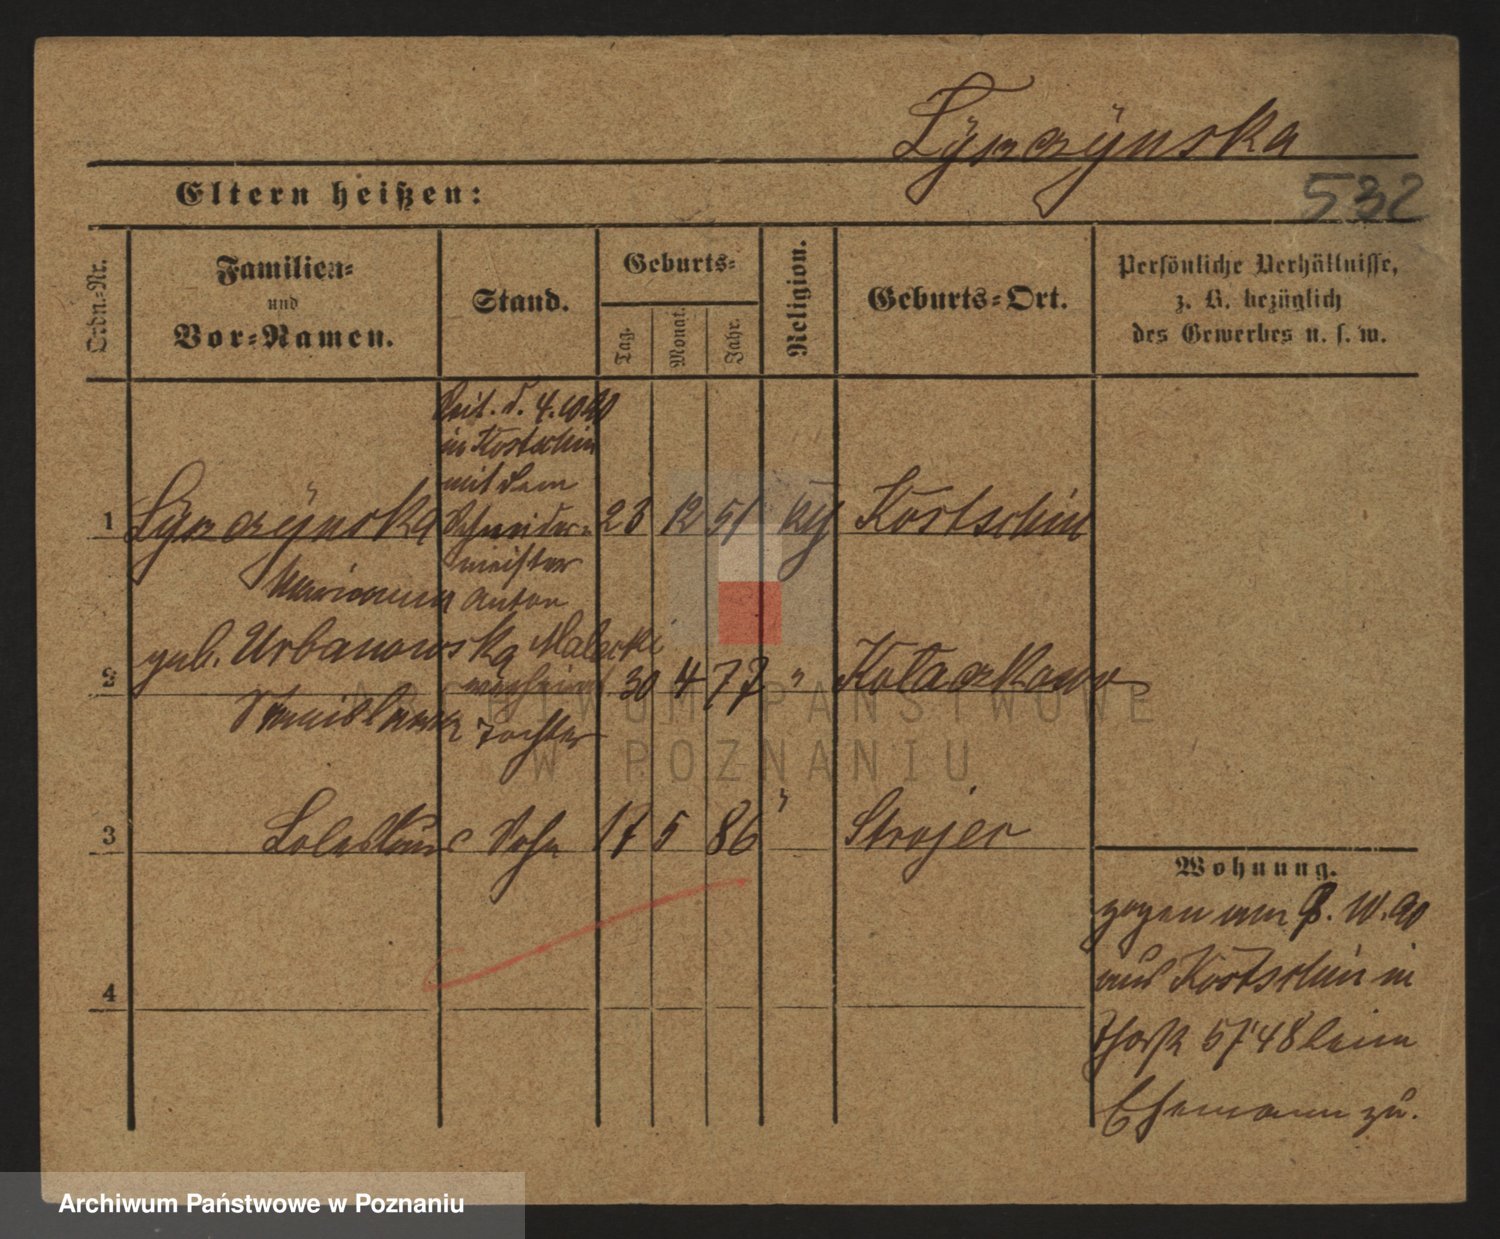 Lÿsczÿnska
Eltern heißen:
532
Ordn.-Nr.
Familien-
und
Vor-Namen.
Stand.
Geburts-
Tag.
Monat.
Jahr.
Religion.
Geburts-Ort.
Persönliche Verhältnisse,
z. B. bezüglich
des Gewerbes u. s. w.
Seit. d. 4.10.90
in Kostschin
mit dem
1 Schneider- 23 12 51 Kostschin
meister
Marianna Anton
geb. Urbanowska Malecki
2 verheirat 30 4 77 " Kołaczkowo
Stanislawa Tochter
3 Sohn 17 5 86 " Strojec
4
Wohnung.
zogen am 8. 10. 90
aus Kostschin in
57/48 beim
Ehemann zu.
ARCHIWUM PAŃSTWOWE
W POZNANIU
Archiwum Państwowe w Poznaniu